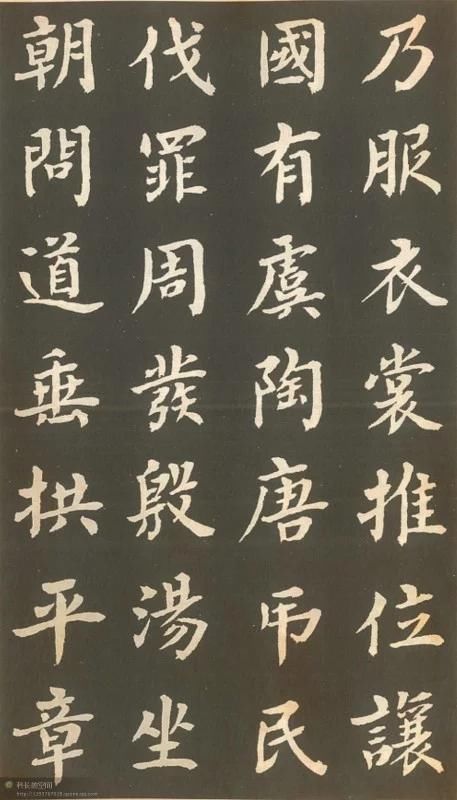 乃服衣裳推位讓
國有虞陶唐弔民
伐罪周發殷湯坐
朝問道垂拱平章
科长的空间